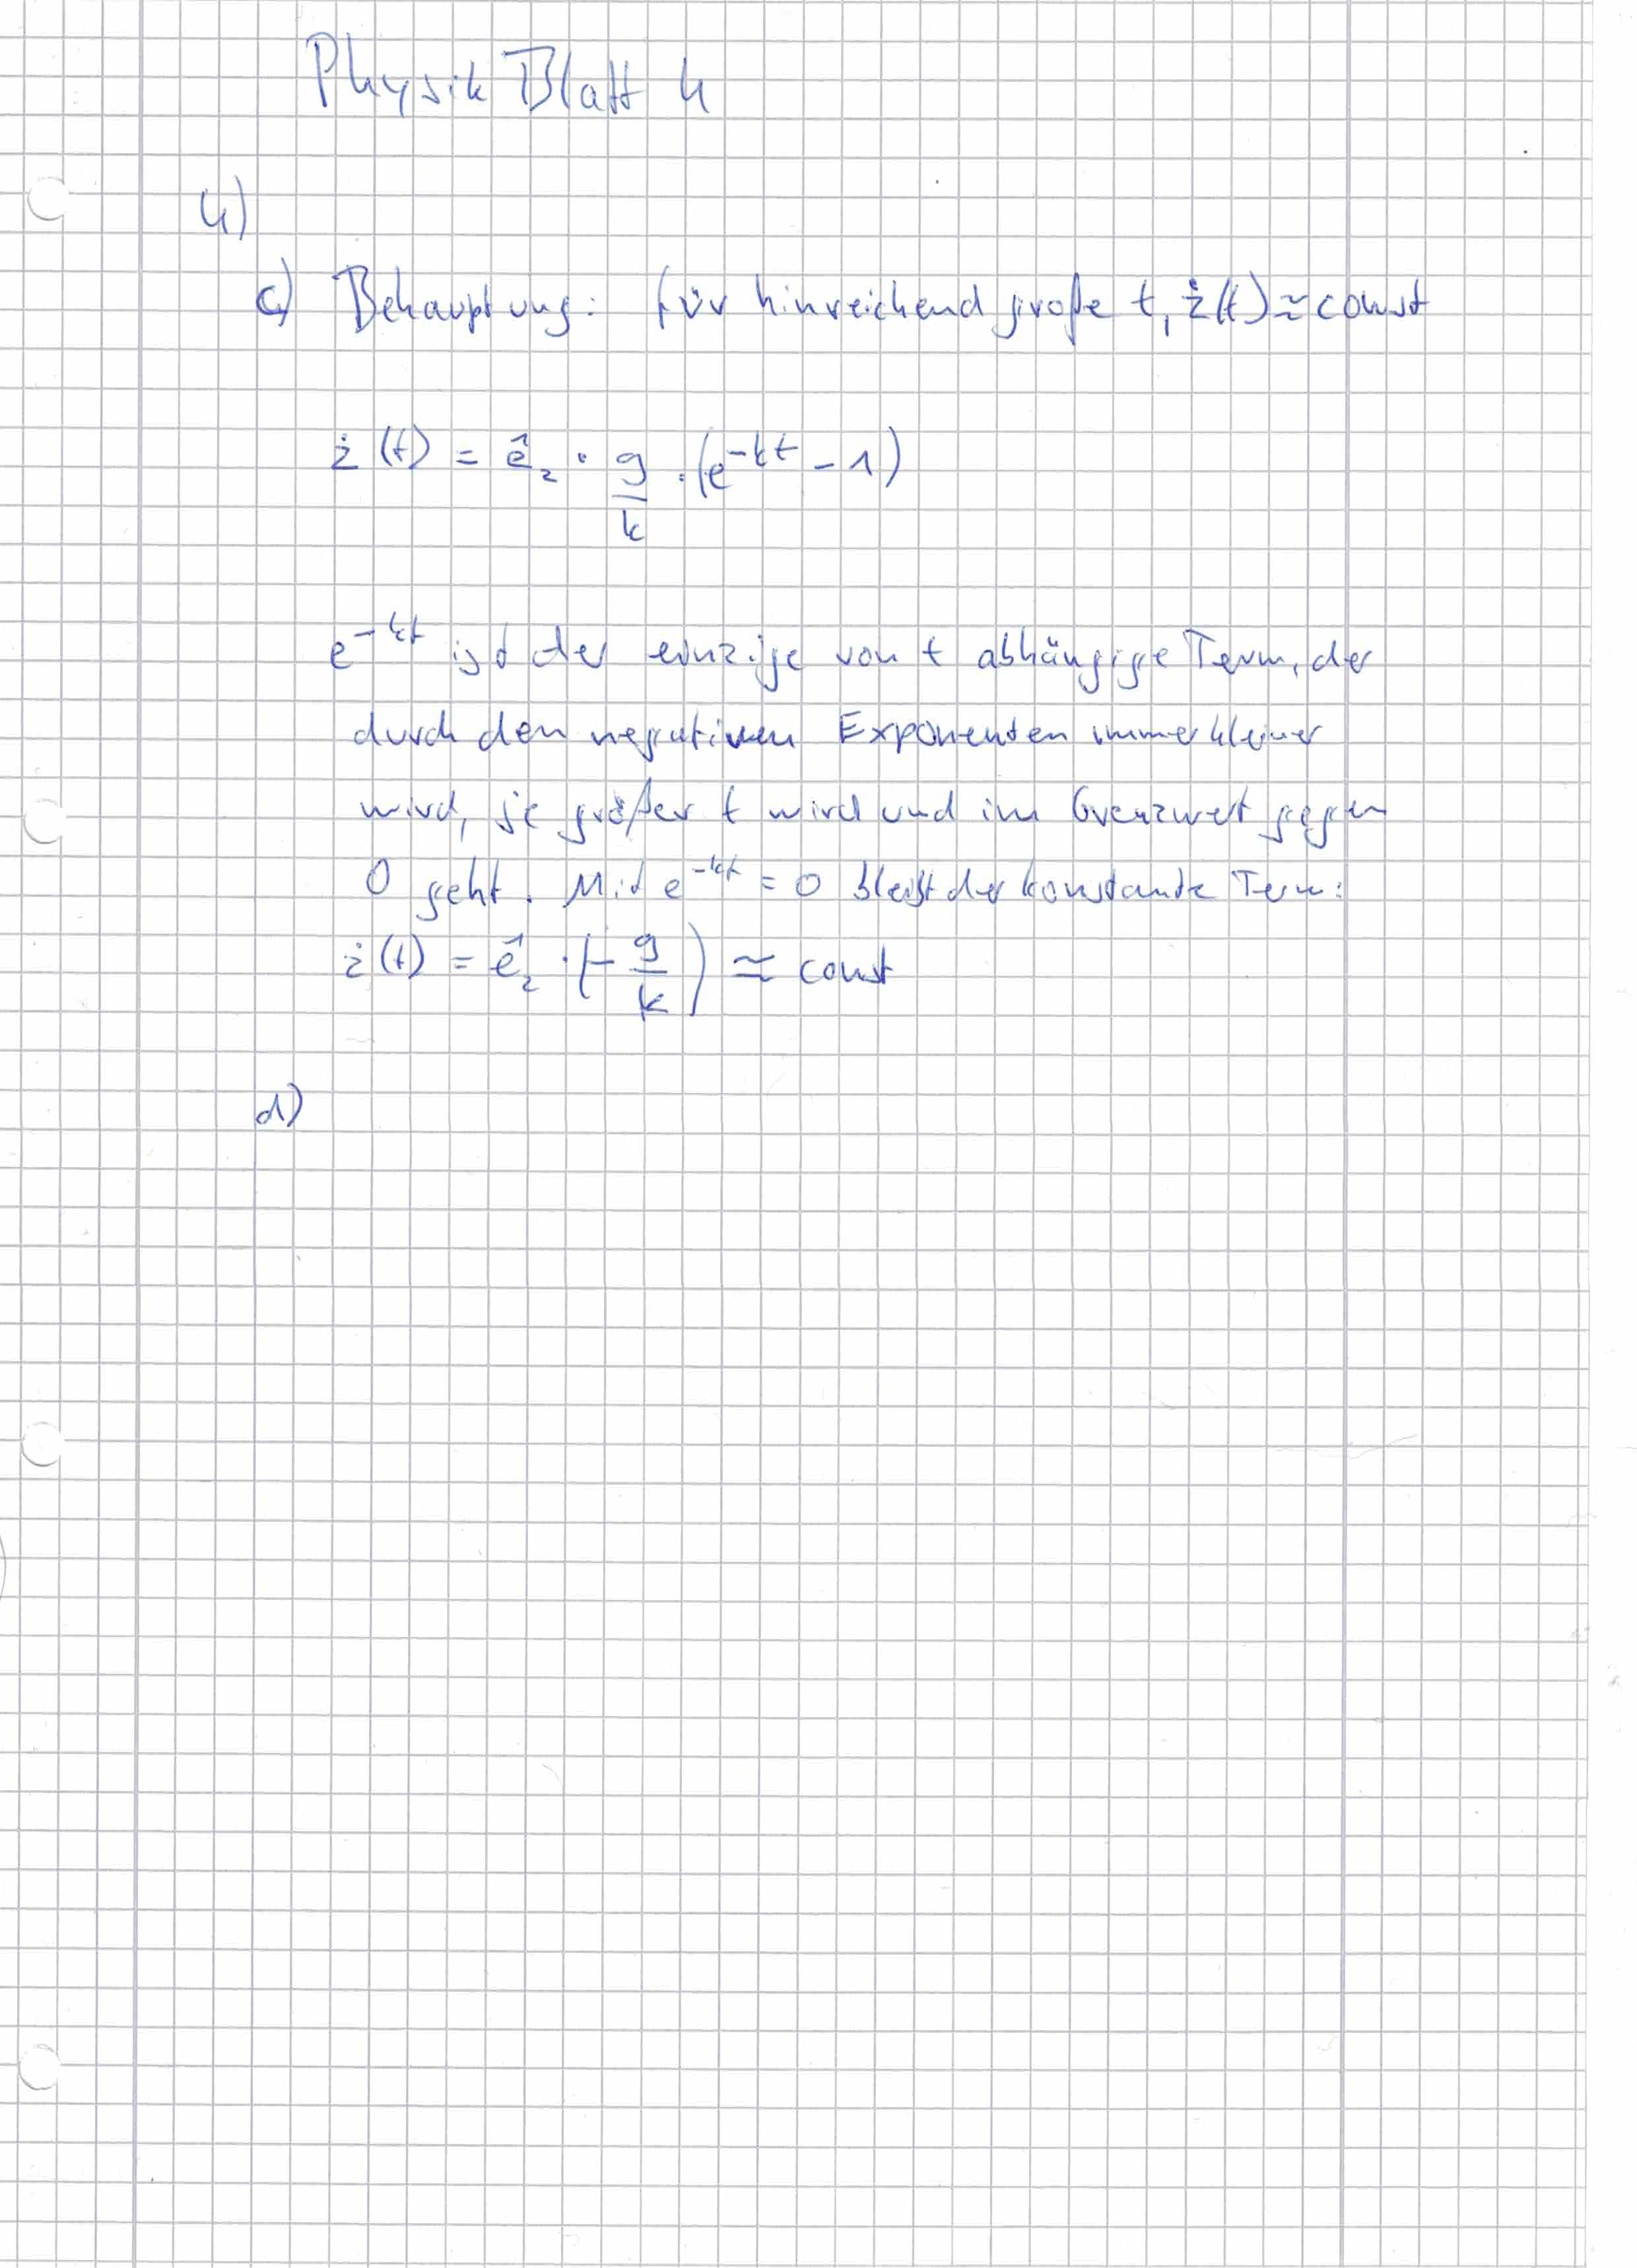 Physik Blatt 4
4)
c) Behauptung: für hinreichend große t, ż(t) ≃ const
ż(t) = ê_z · g/k · (e^{-kt} - 1)
e^{-kt} ist der einzige von t abhängige Term, der
durch den negativen Exponenten immer kleiner
wird, je größer t wird und im Grenzwert gegen
0 geht. Mit e^{-kt} = 0 bleibt der konstante Term:
ż(t) = ê_z · (- g/k) ≃ const
d)